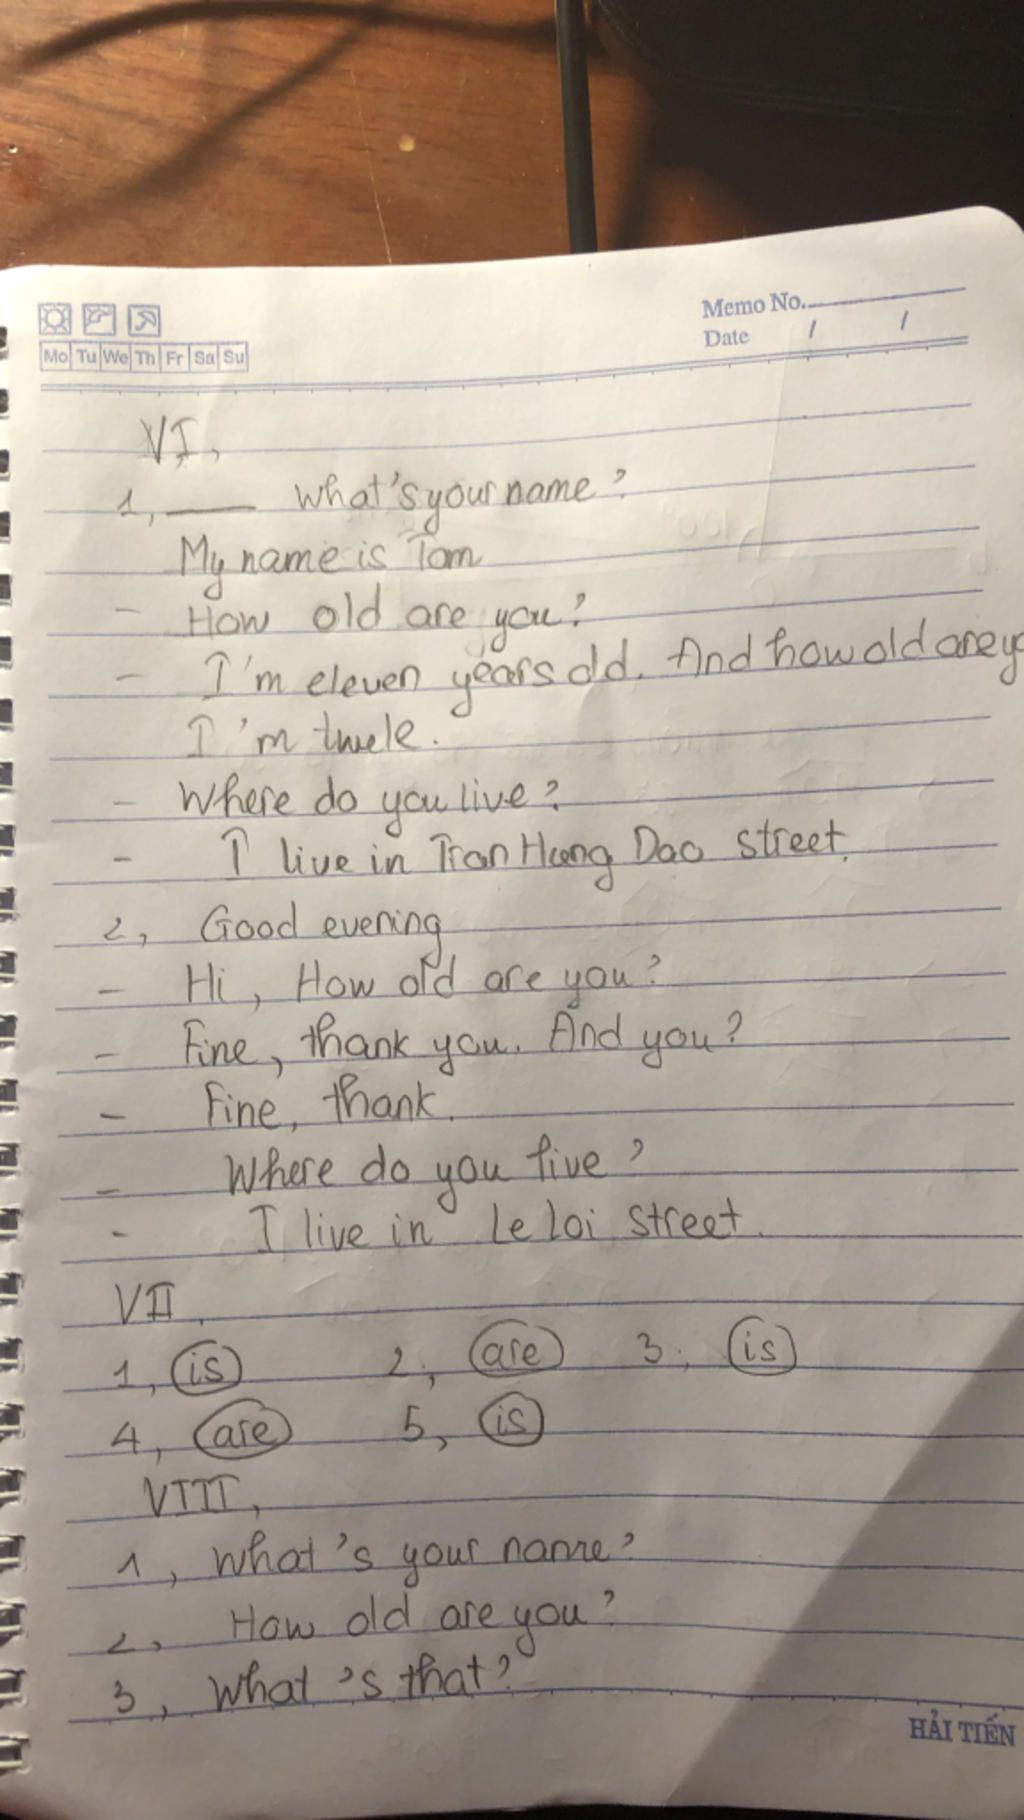 Memo No.
Date / /
Mo Tu We Th Fr Sa Su
VI,
1, ____ What's your name?
My name is Tom
- How old are you?
- I'm eleven years old. And how old are y
I'm twele.
- Where do you live?
- I live in Tran Hung Dao street.
2, Good evening
- Hi, How old are you?
- Fine, thank you. And you?
- Fine, thank.
- Where do you live?
- I live in Le Loi street.
VII.
1, is 2, are 3, is
4, are 5, is
VIII,
1, What's your name?
2, How old are you?
3, What's that?
HẢI TIẾN